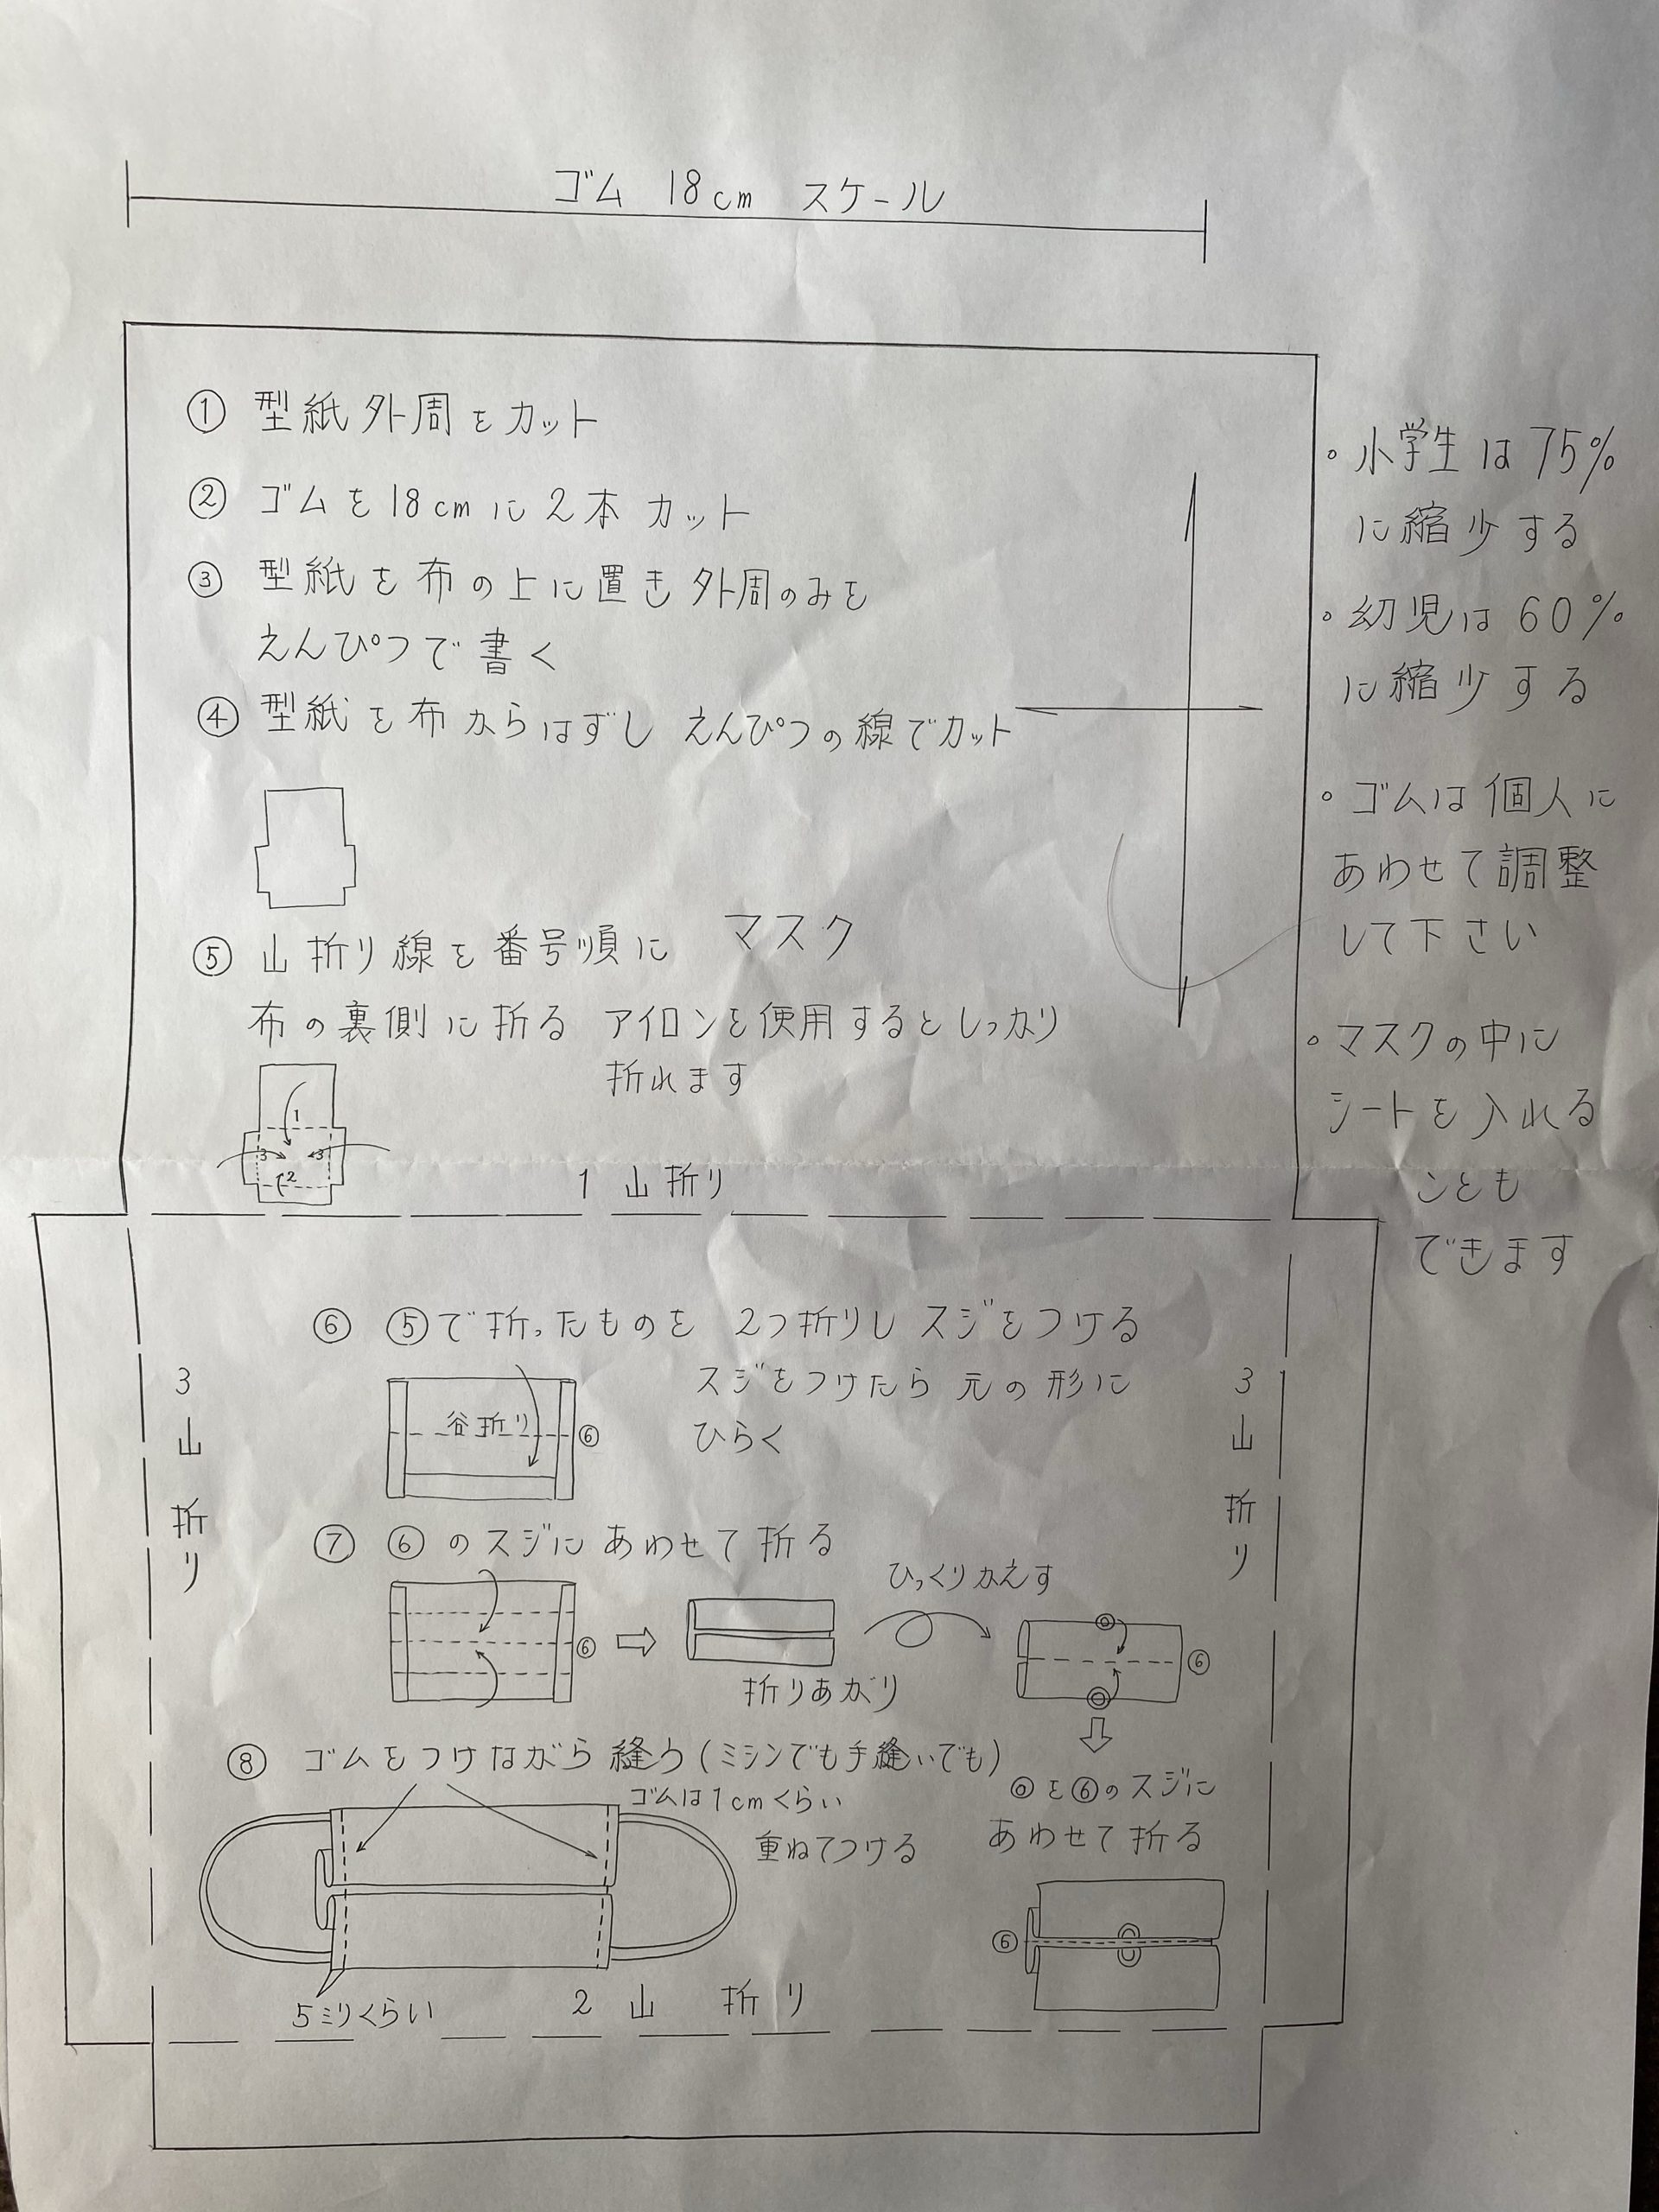 ゴム 18cm スケール
① 型紙外周をカット
② ゴムを18cmに2本カット
③ 型紙を布の上に置き外周のみを
えんぴつで書く
④ 型紙を布からはずし えんぴつの線でカット
マスク
⑤ 山折り線を番号順に
布の裏側に折る アイロンを使用するとしっかり
折れます
1
3 3
2
1 山折り
・小学生は75%
に縮少する
・幼児は60%
に縮少する
・ゴムは個人に
あわせて調整
して下さい
・マスクの中に
シートを入れる
ことも
できます
3山折り
3山折り
⑥ ⑤で折ったものを 2つ折りし スジをつける
スジをつけたら 元の形に
ひらく
谷折り ⑥
⑦ ⑥のスジにあわせて折る
⑥
折りあがり
ひっくりかえす
◎
⑥
◎
◎を⑥のスジに
あわせて折る
⑥
⑧ ゴムをつけながら縫う(ミシンでも手縫いでも)
ゴムは1cmくらい
重ねてつける
5ミリくらい
2 山 折り